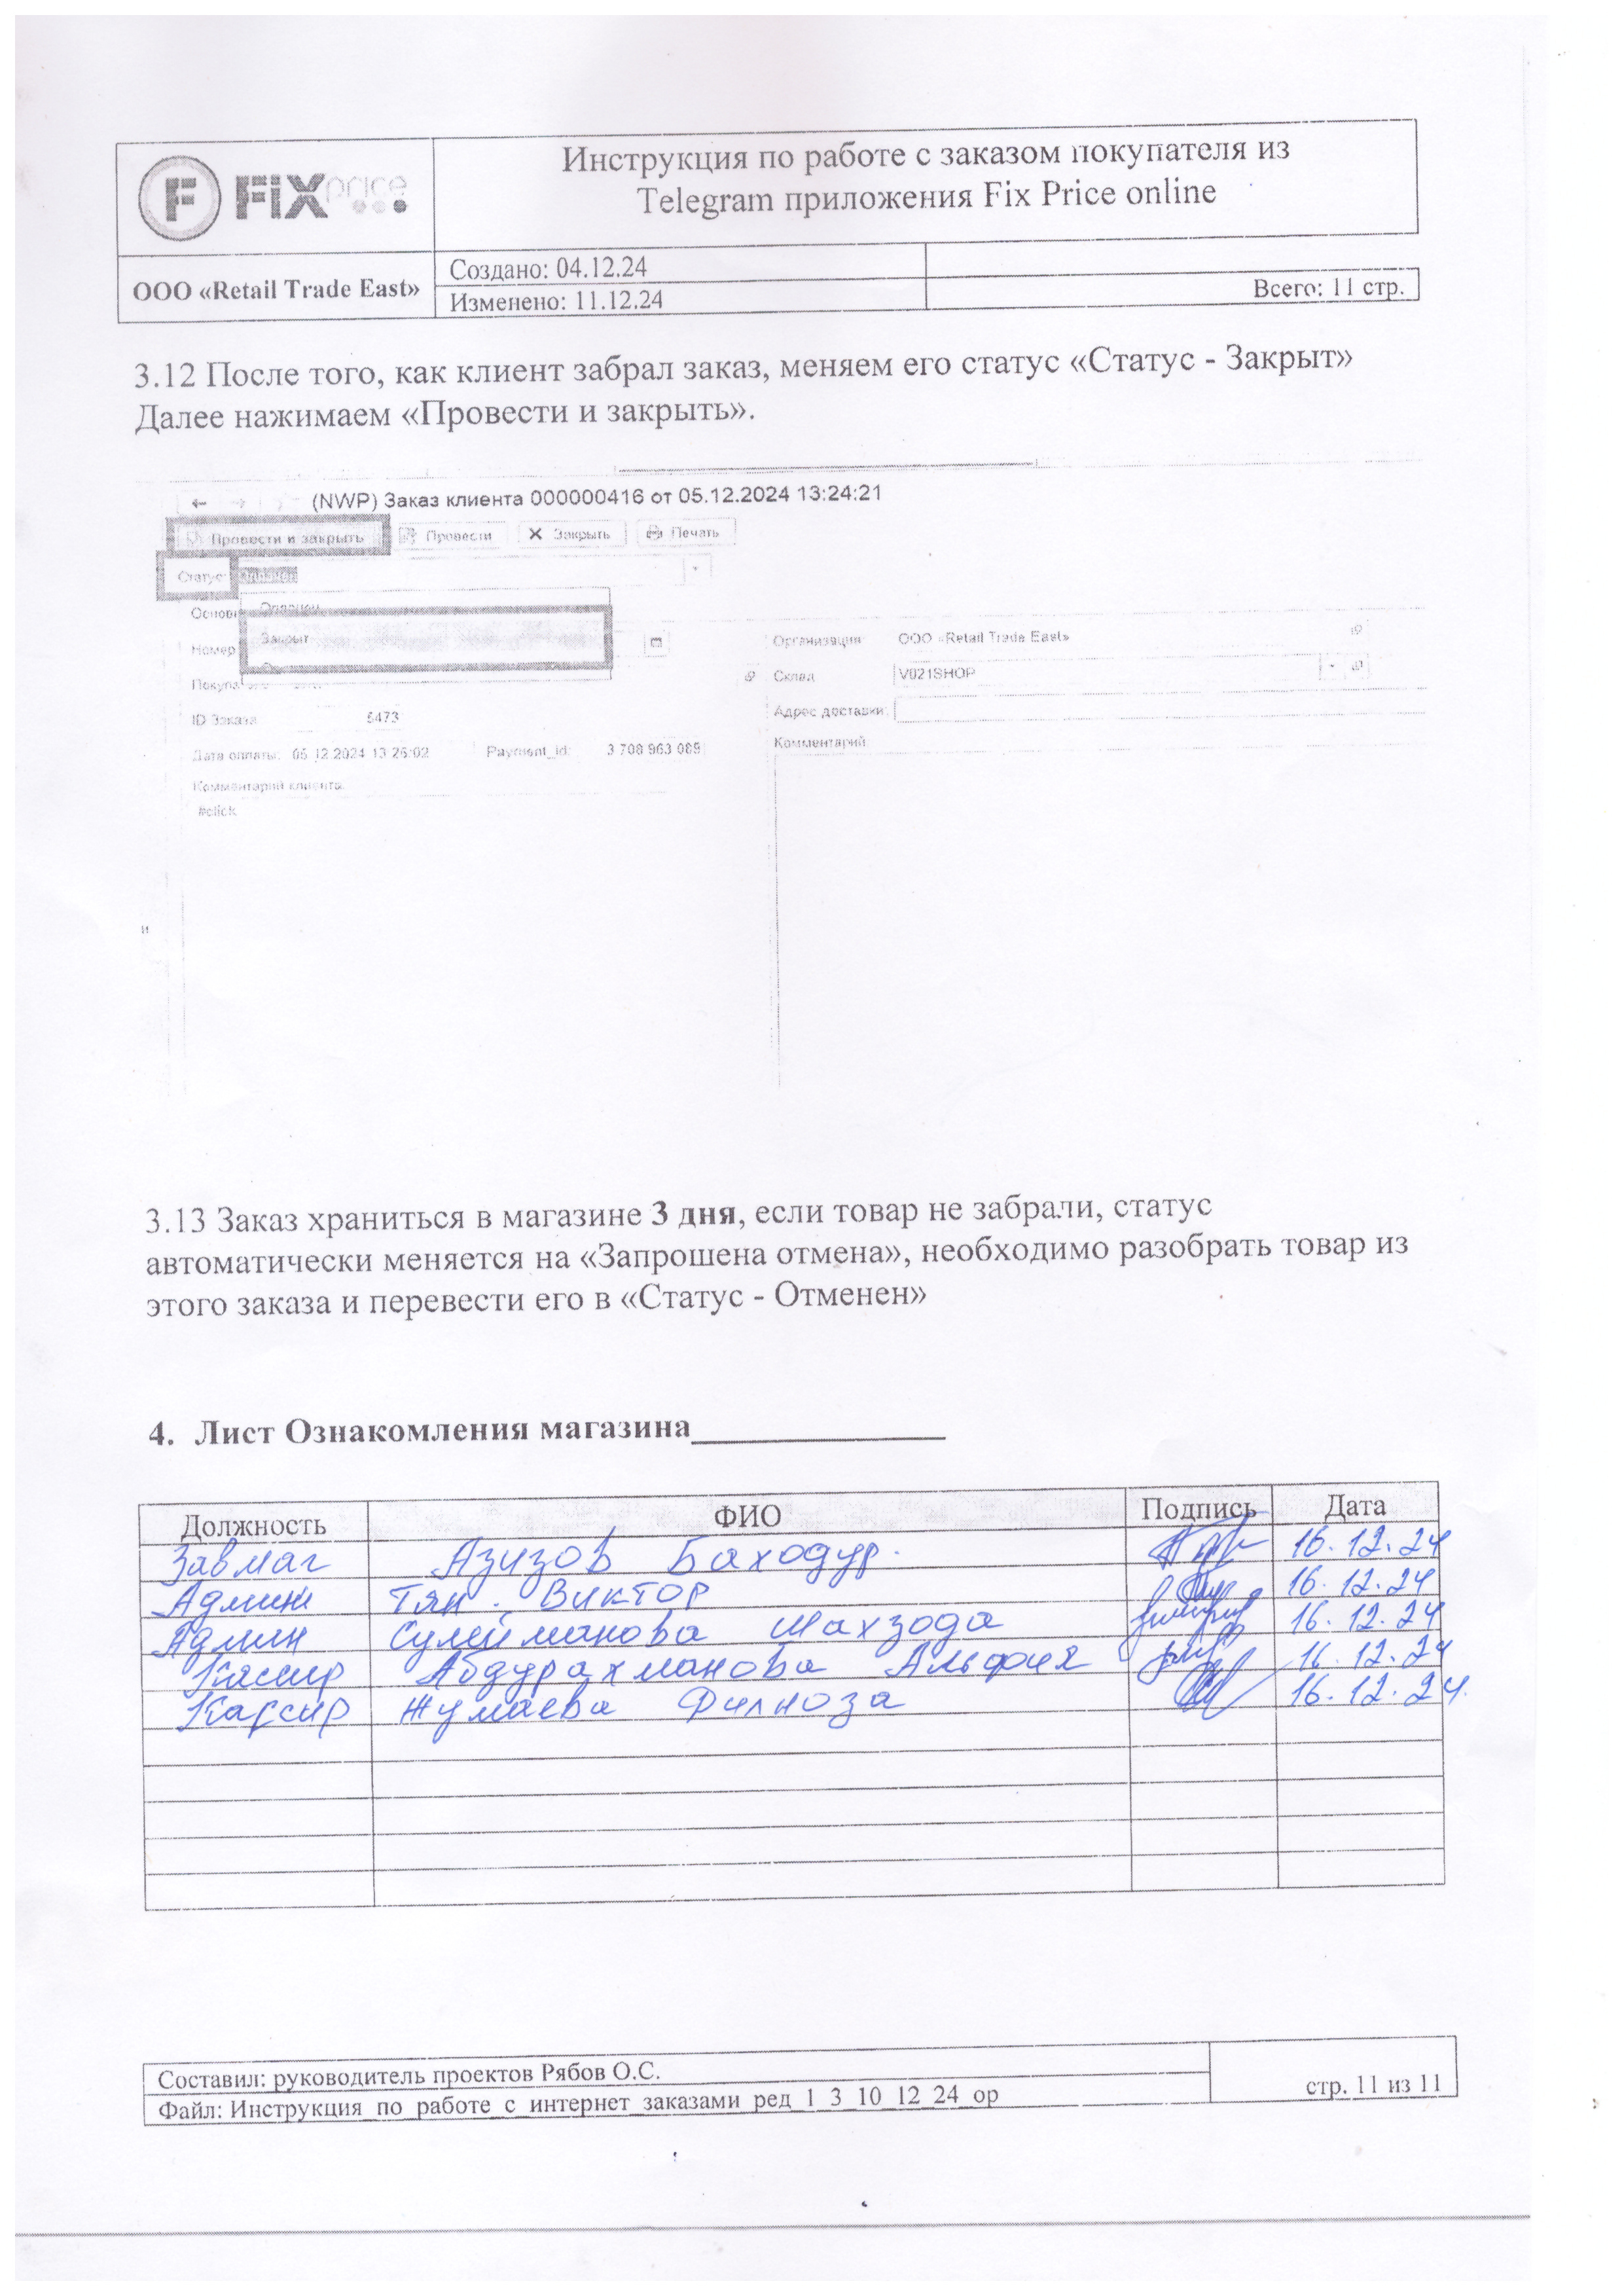 F FiX price
Инструкция по работе с заказом покупателя из
Telegram приложения Fix Price online
ООО «Retail Trade East»
Создано: 04.12.24
Изменено: 11.12.24
Всего: 11 стр.
3.12 После того, как клиент забрал заказ, меняем его статус «Статус - Закрыт»
Далее нажимаем «Провести и закрыть».
(NWP) Заказ клиента 000000416 от 05.12.2024 13:24:21
Провести и закрыть Провести Закрыть Печать
Статус:
Закрыт
Номер Организация ООО «Retail Trade East»
Склад V021SHOP
ID Заказа 5473 Адрес доставки:
Дата оплаты: 05.12.2024 13:26:02 Payment_id: 3 708 963 089 Комментарий
Комментарий клиента:
#click
3.13 Заказ храниться в магазине 3 дня, если товар не забрали, статус
автоматически меняется на «Запрошена отмена», необходимо разобрать товар из
этого заказа и перевести его в «Статус - Отменен»
4. Лист Ознакомления магазина
Должность ФИО Подпись Дата
Завмаг Азизов Баходур. 16.12.24
Админ Тян. Виктор 16.12.24
Админ Сулейманова Махзода 16.12.24
Кассир Абдурахманова Альфия 16.12.24
Кассир Жумаева Филноза 16.12.24.
Составил: руководитель проектов Рябов О.С.
Файл: Инструкция_по_работе_с_интернет_заказами_ред_1_3_10_12_24_ор
стр. 11 из 11